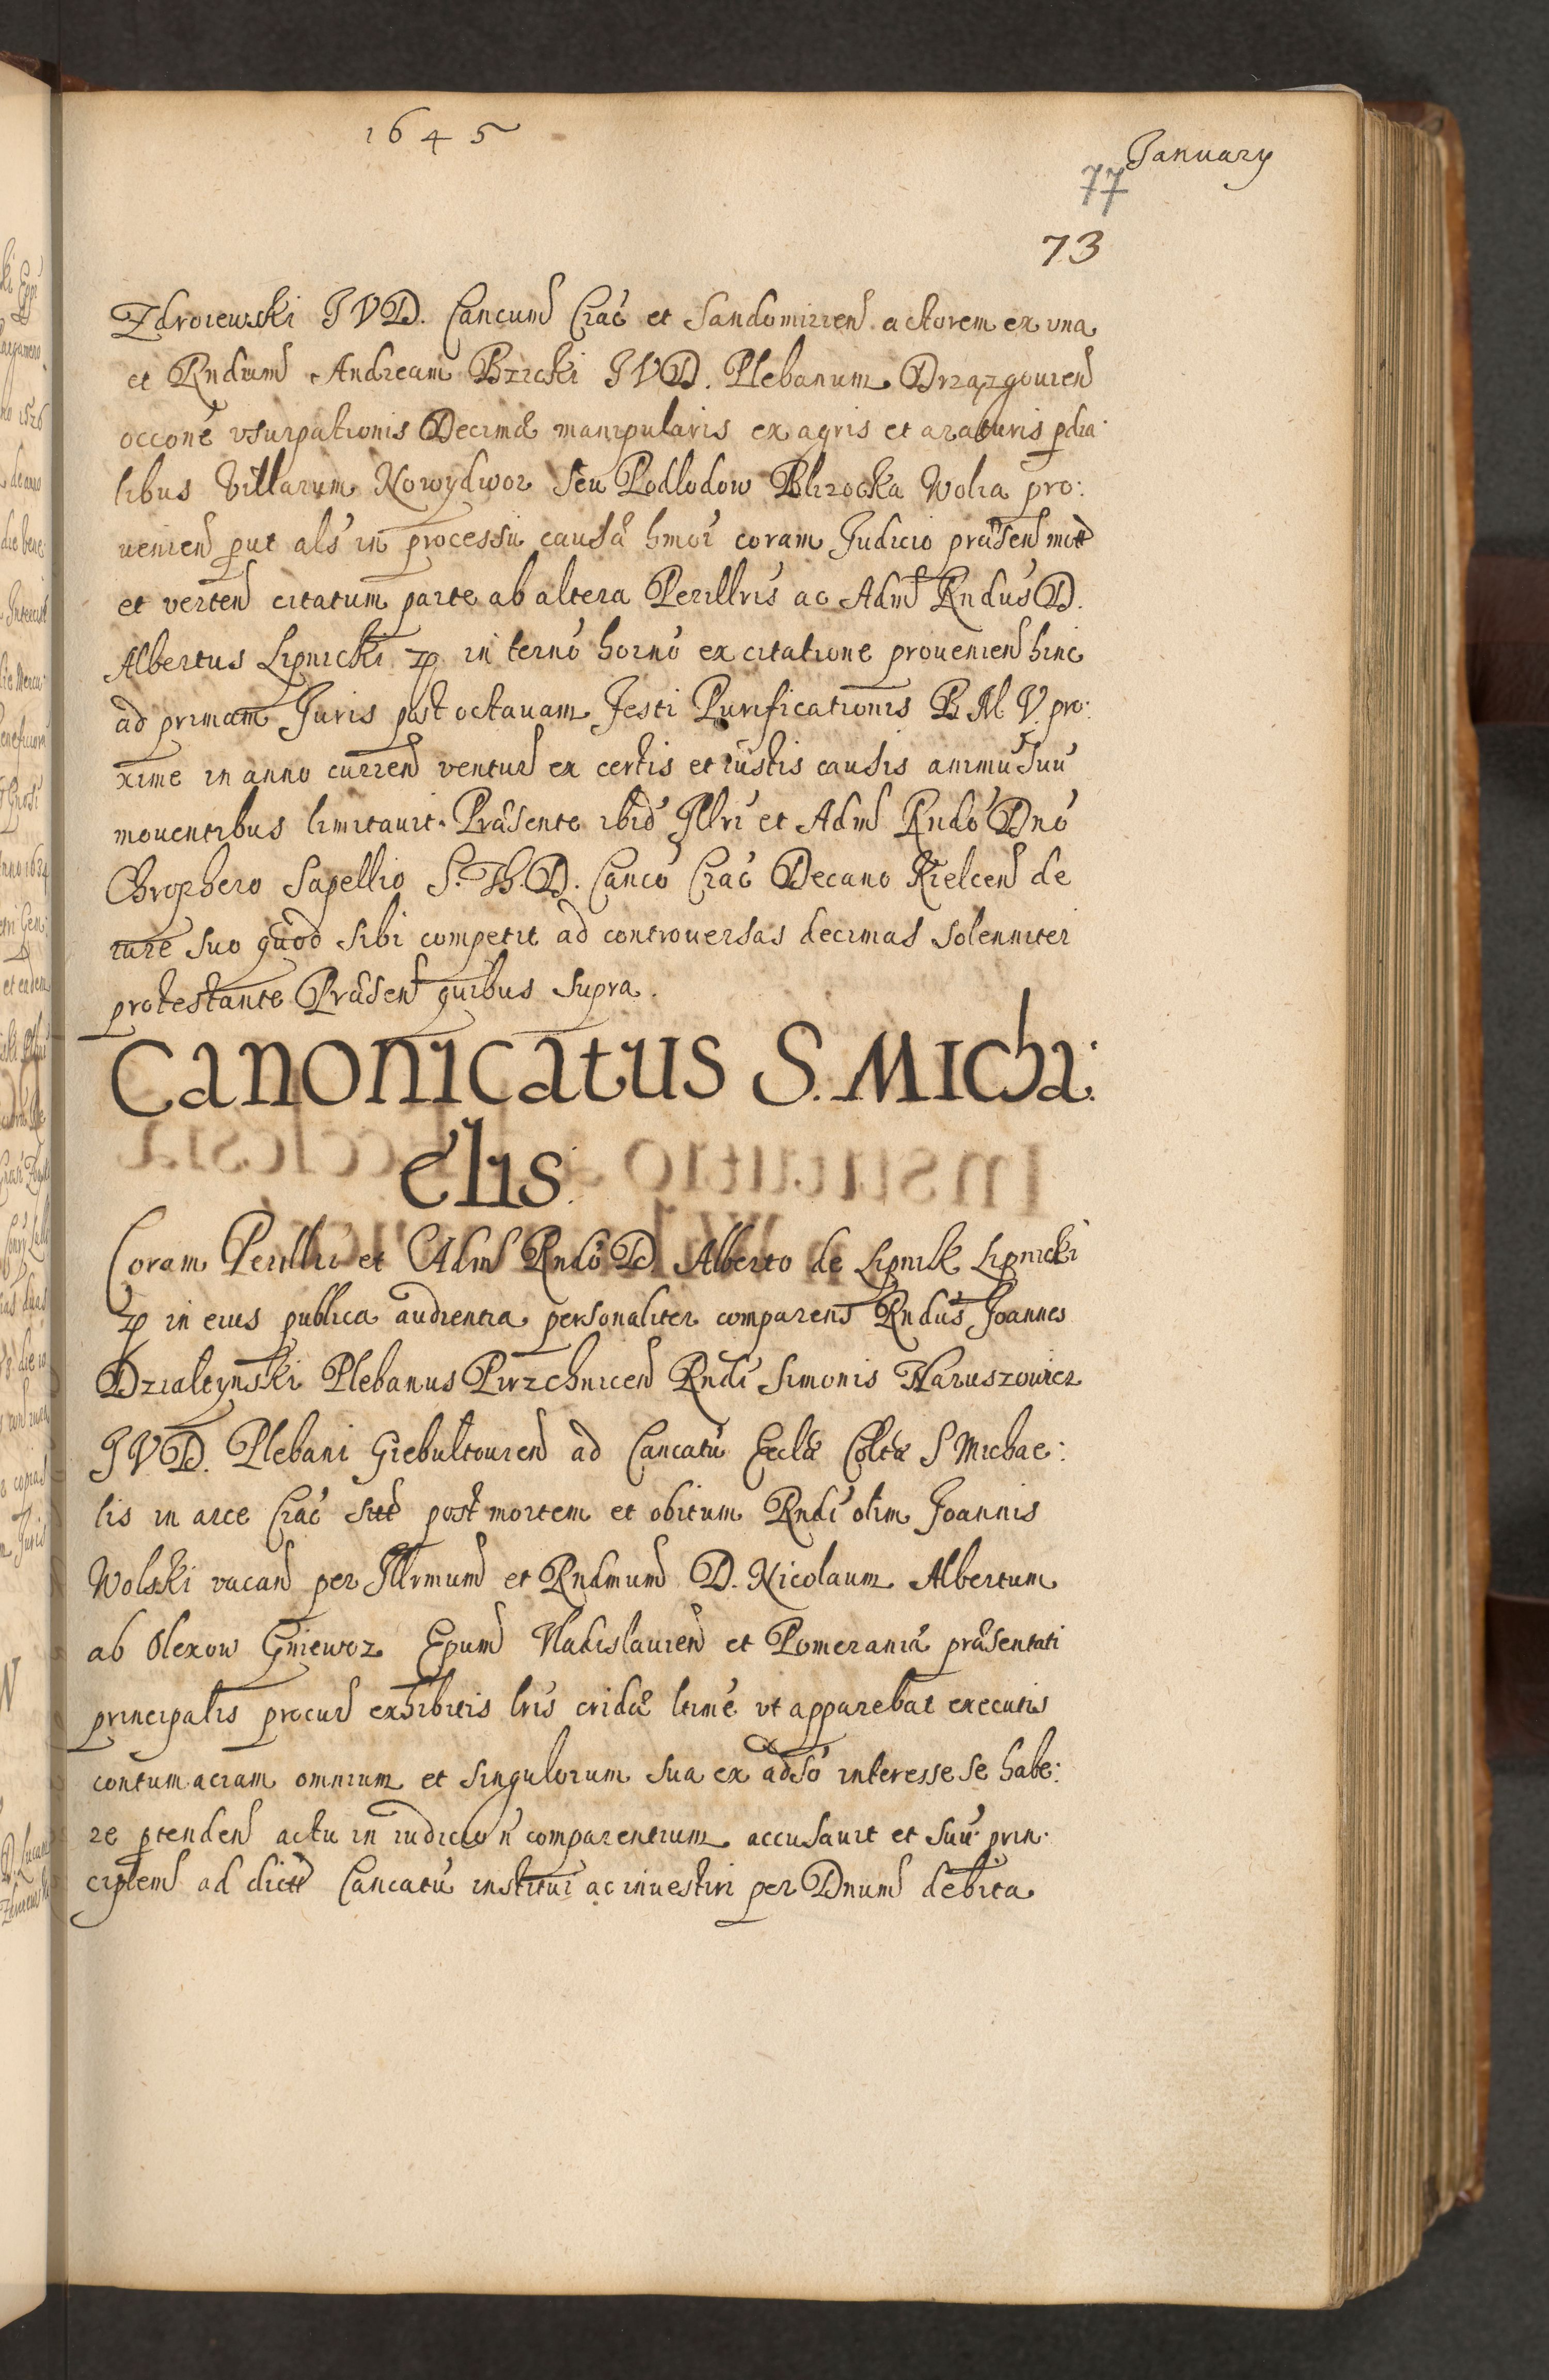 1645
January
77
73
Zdroiewski J V D. Cancum Crac et Sandomirien. actorem ex vna
et Rndum Andream Bzicki J V D. Plebanum Drzązgouien
occone vsurpationis Decimæ manipularis ex agris et araturis pdia
libus Villarum Nowydwor seu Podlodow Blizocka Wolia pro:
uenien put als in processu causæ hmoi coram Judicio præsen mot
et verten citatum parte ab altera Perillris ac Adm Rndus D.
Albertus Lipnicki zp in terno horno ex citatione prouenien hinc
ad primam Juris post octauam Festi Purificationis B M V. pro:
xime in anno curren ventur ex certis et iustis causis animu suu
mouentibus limitauit. Præsente ibid Illri et Adm Rndo Dno
Chrophero Sapellio S. Th. D. Canco Crac Decano Kielcen de
iure suo quod sibi competit ad controuersas decimas solenniter
protestante Præsent quibus supra.
Canonicatus S. Micha:
elis.
Coram Perillri et Adm Rndo D. Alberto de Lipnik Lipnicki
zp in eius publica audientia personaliter comparens Rndus Joannes
Dzialtynski Plebanus Pirzchnicen Rndi Simonis Haruszowicz
J V D. Plebani Giebultouien ad Cancatu Eccle Coltæ S Michae:
lis in arce Crac sitt post mortem et obitum Rndi olim Joannis
Wolski vacan per Illrmum et Rndmum D. Nicolaum Albertum
ab Olexow Gniewoz Epum Vladislauien et Pomeraniæ præsentati
principalis procur exhibitis lris cridæ ltime vt apparebat executis
contumaciam omnium et singulorum sua ex adso interesse se habe:
re ptenden actu in iudicio n comparentium accusauit et suu prin:
ciplem ad dictt Cancatu institui ac inuestiri per Dnum debita